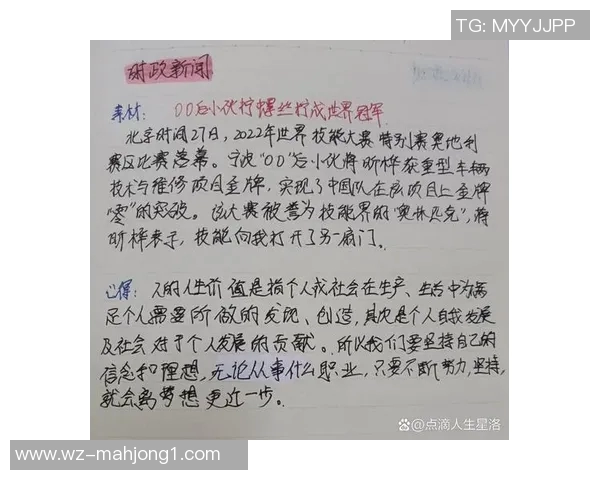 TG: MYYJJPP
时政新闻
素材: 00后小伙拧螺丝拧成世界冠军
北京时间27日,2022年世界技能大赛特别赛奥地利
赛区比赛落幕。宁波"00"后小伙蒋昕桦获重型车辆
技术与维修项目金牌,实现了中国队在该项目上金牌
"零"的突破。该大赛被誉为技能界的"奥林匹克",蒋
昕桦表示,技能向我打开了另一扇门。
心得: 人的人生价值是指个人或社会在生产、生活中为满
足个人需要所做的发现、创造,其次是个人自我发展
及社会对于个人发展的贡献。所以我们要坚持自己的
信念和理想,无论从事什么职业,只要不断努力,坚持,
就会离梦想更近一步。
www.wz-mahjong1.com
@点滴人生星洛